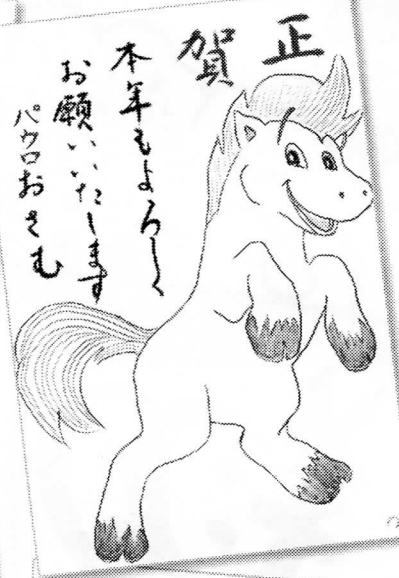 賀正
本年もよろしく
お願いいたします
パウロおさむ